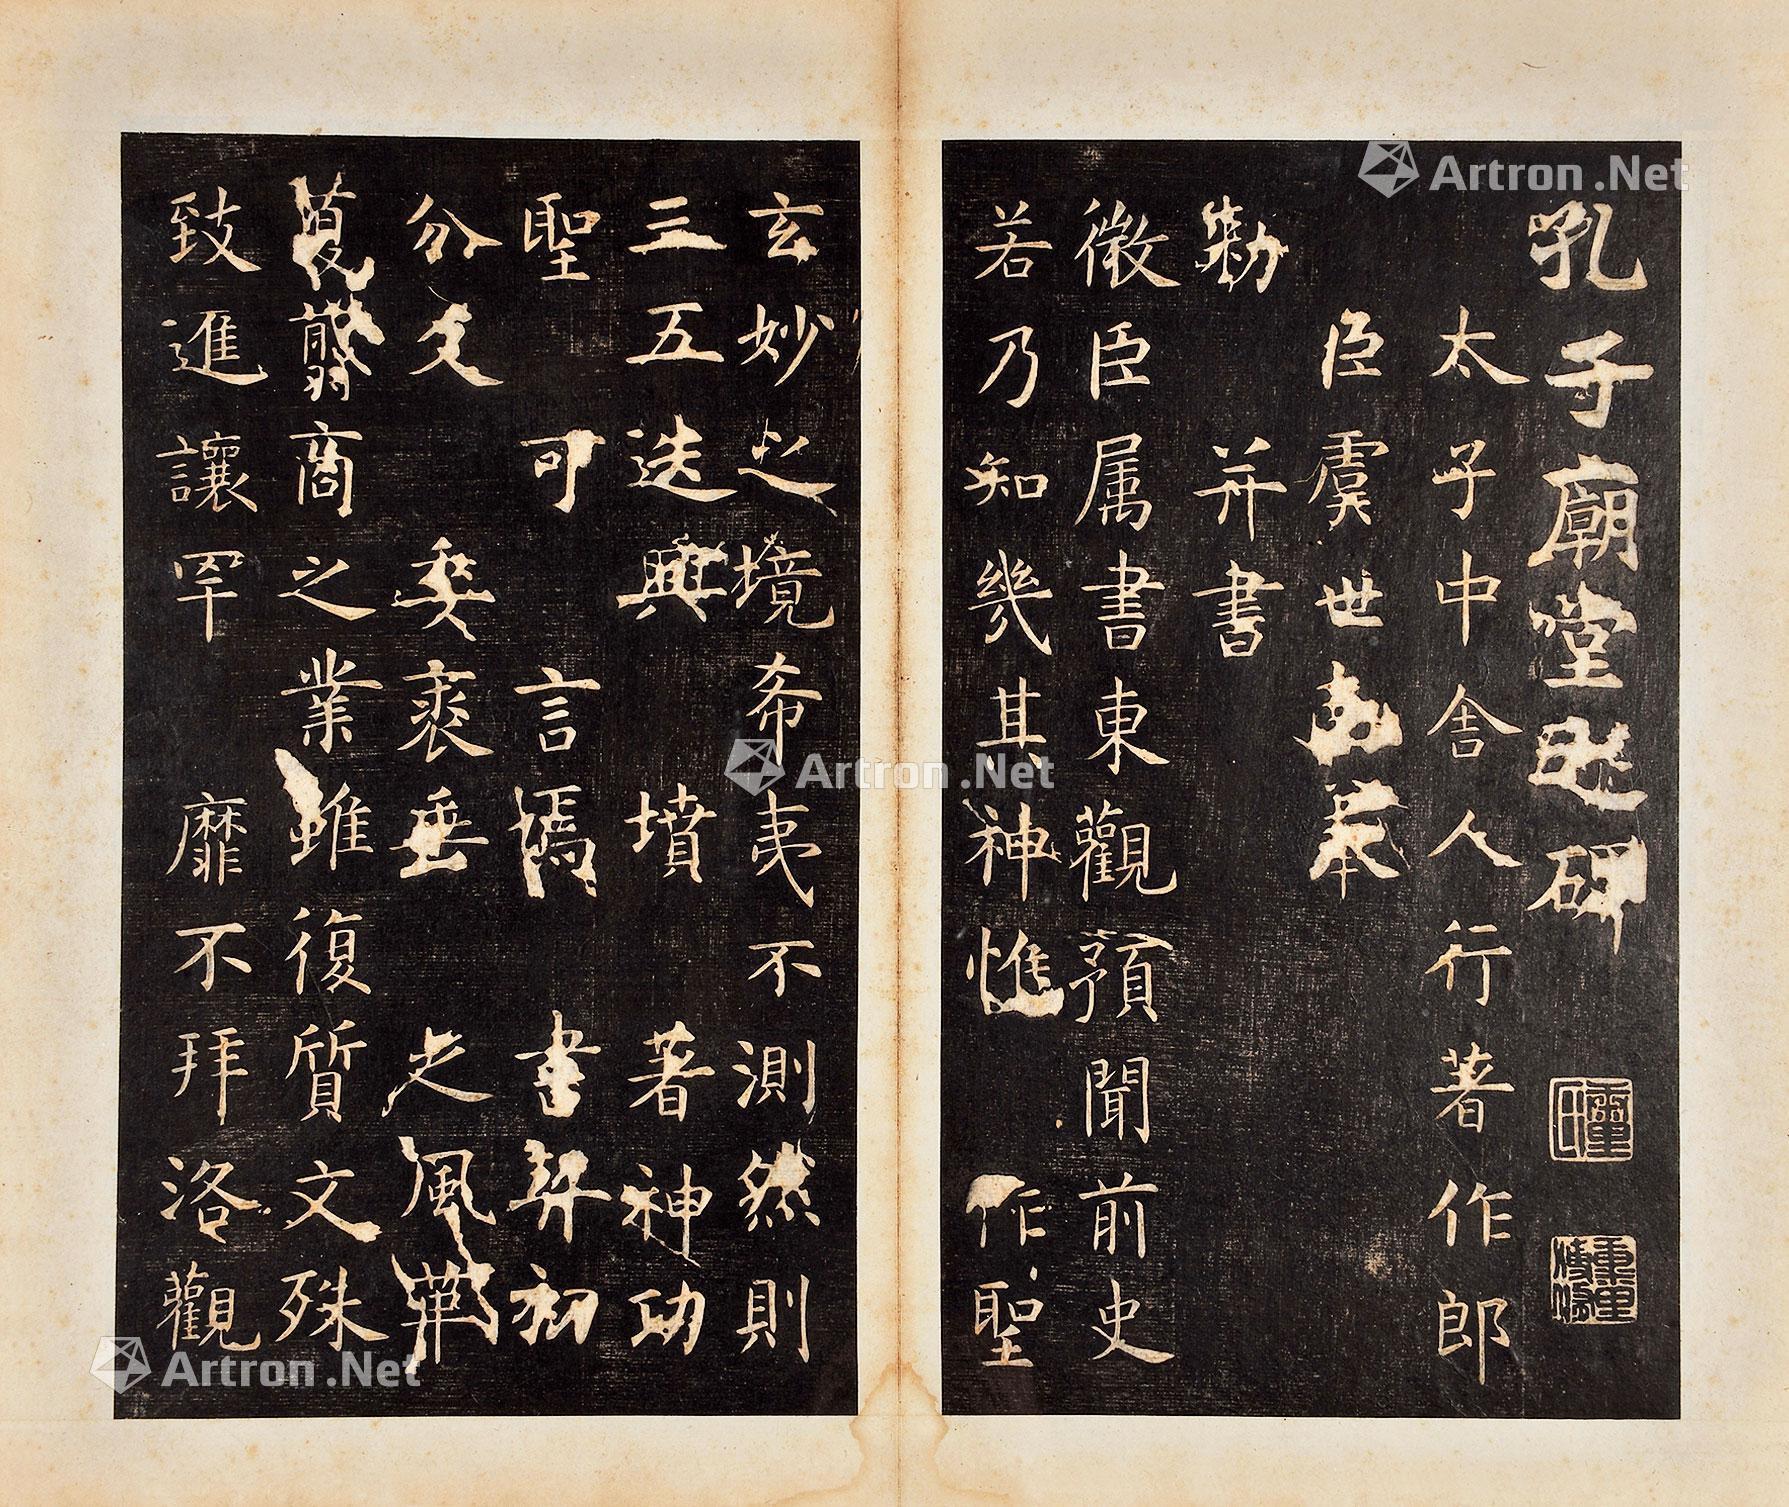 孔子廟堂之碑
太子中舍人行著作郎
臣虞世南奉
勑 并書
微臣属書東觀預聞前史
若乃知幾其神惟 作聖
玄妙之境希夷不測然則
三五迭興 墳 著神功
聖 可 言焉 書契初
分文 委裘垂 之風華
夏翦商之業雖復質文殊
致進讓罕 靡不拜洛觀
Artron.Net
Artron.Net
Artron.Net